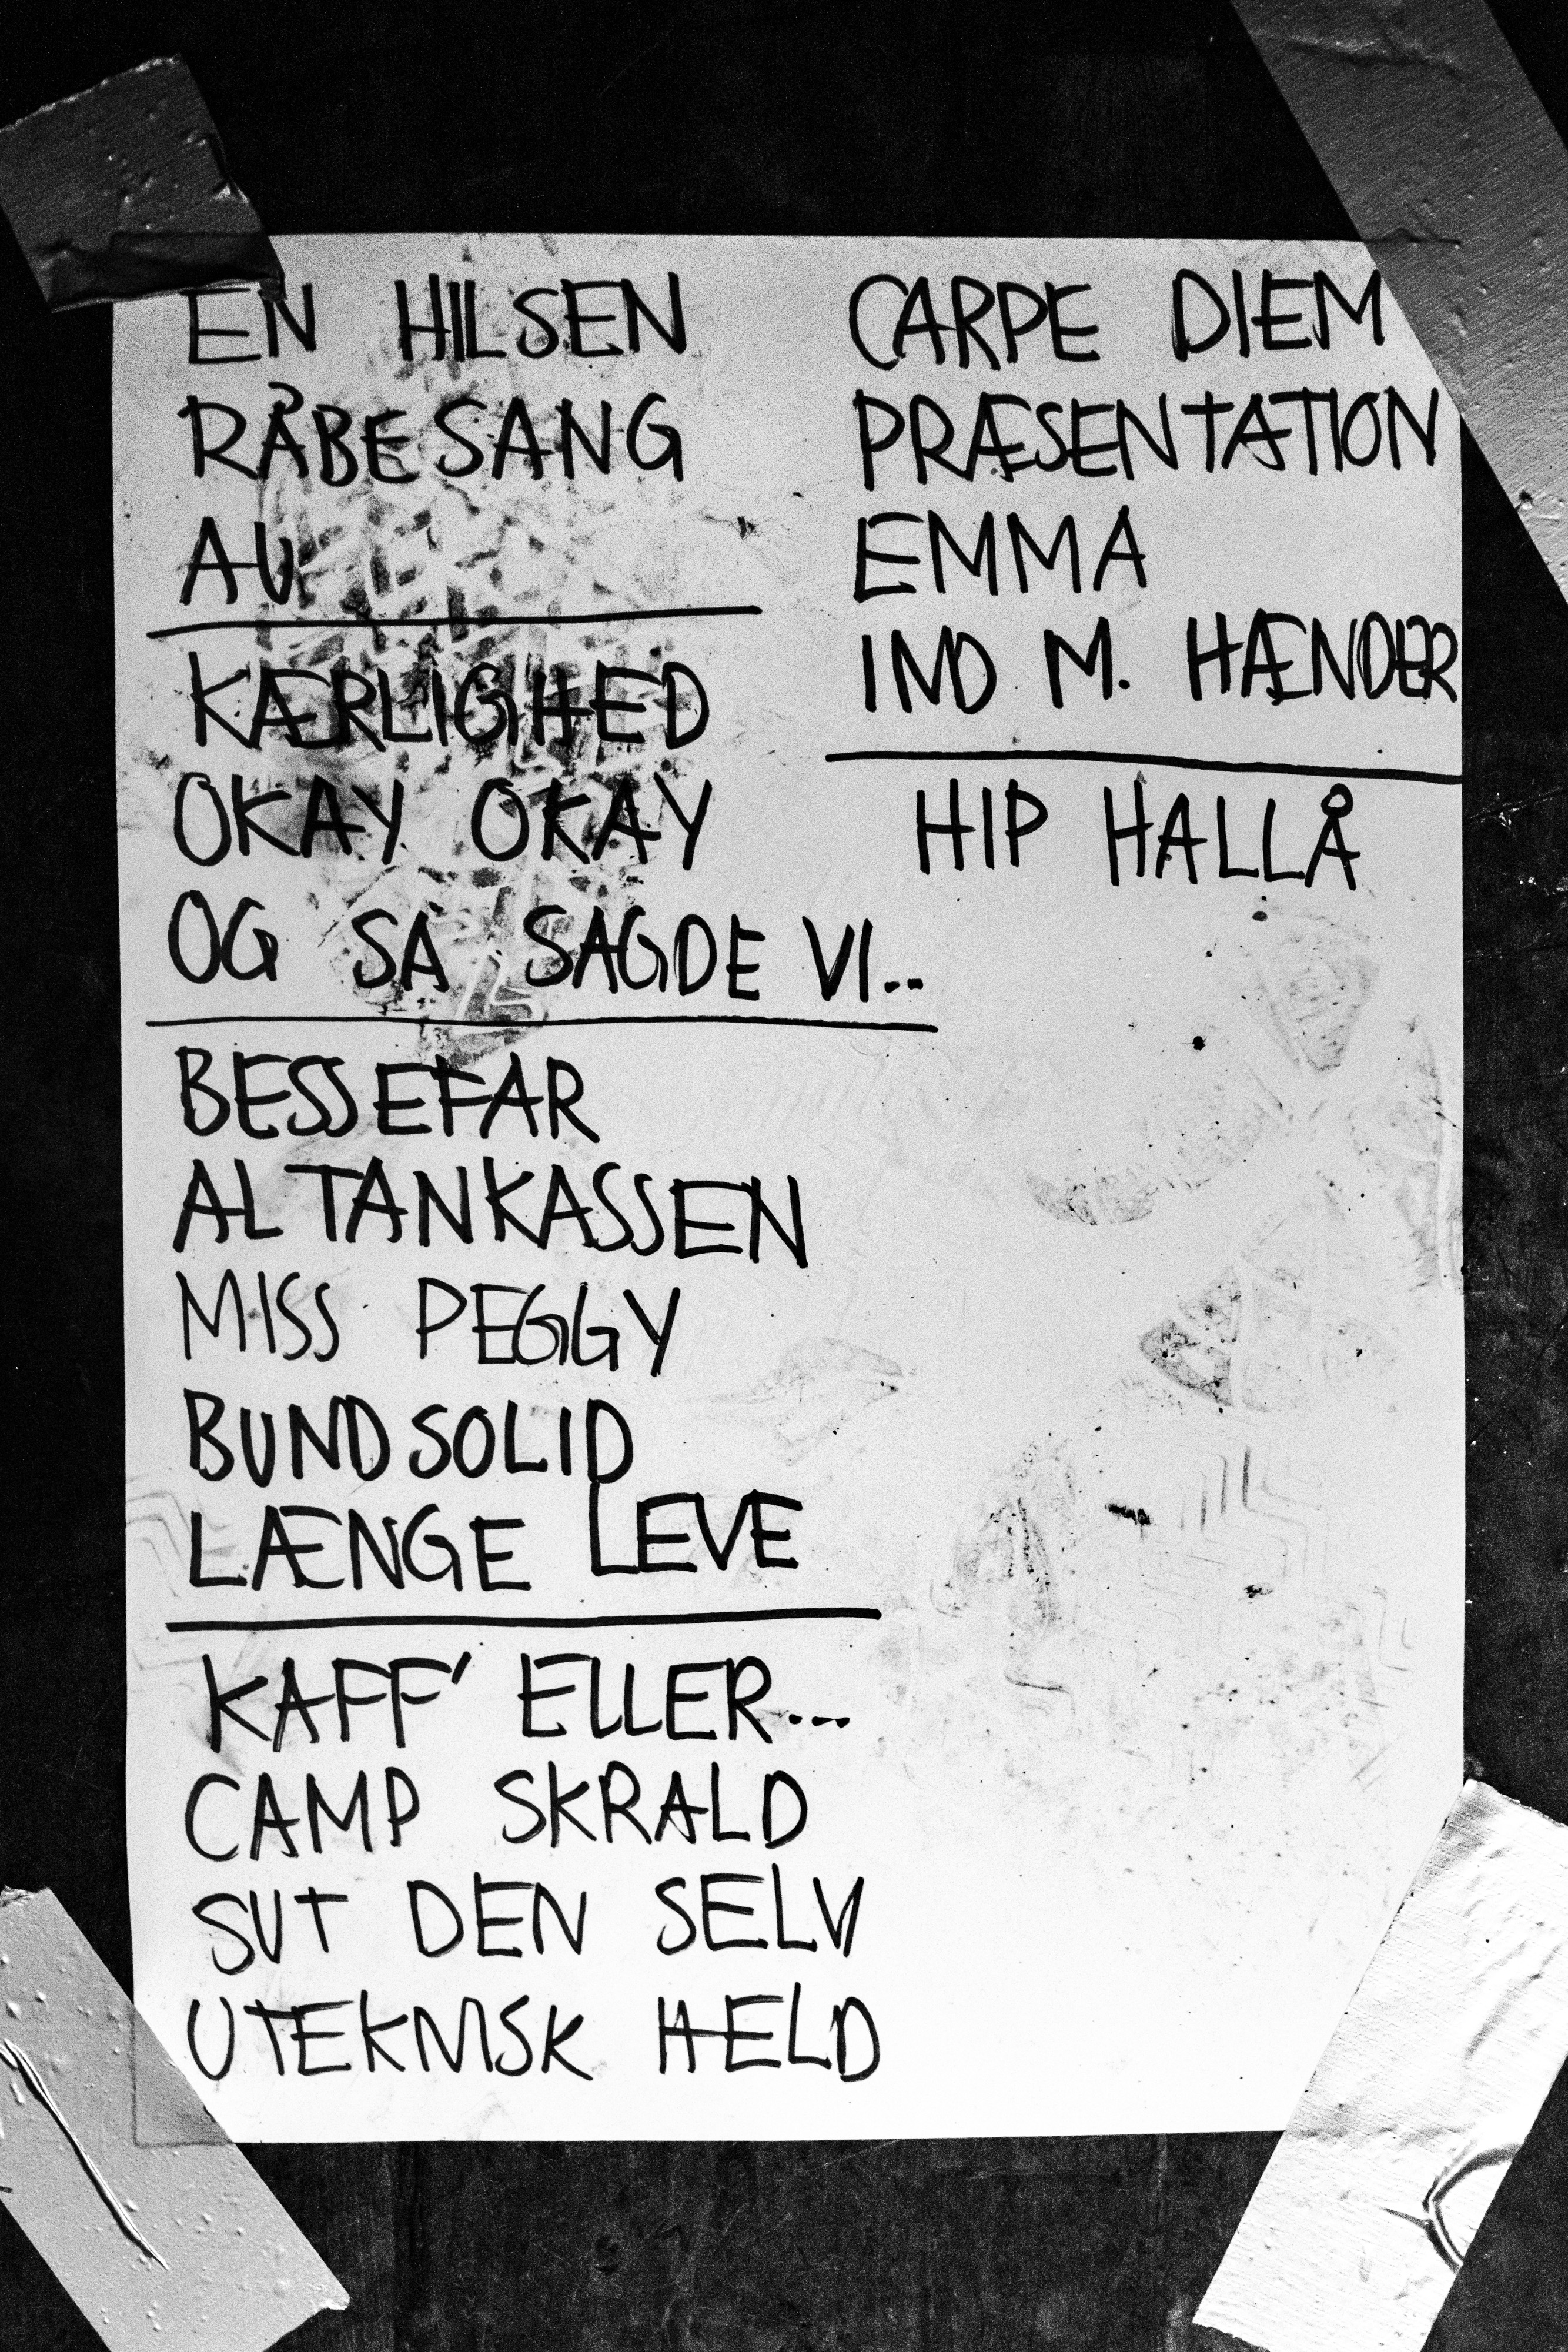 EN HILSEN
RÅBESANG
AU
KÆRLIGHED
OKAY OKAY
OG SÅ SAGDE VI..
BESSEFAR
ALTANKASSEN
MISS PEGGY
BUNDSOLID
LÆNGE LEVE
KAFF' ELLER...
CAMP SKRALD
SUT DEN SELV
UTEKNISK HELD
CARPE DIEM
PRÆSENTATION
EMMA
IND M. HÆNDER
HIP HALLÅ